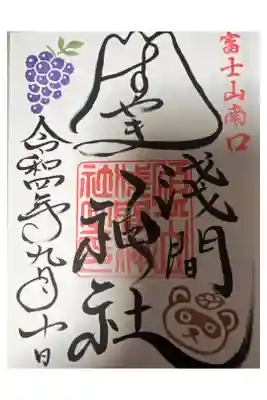 富士山南口
すやま
浅間
神社
令和四年九月十日